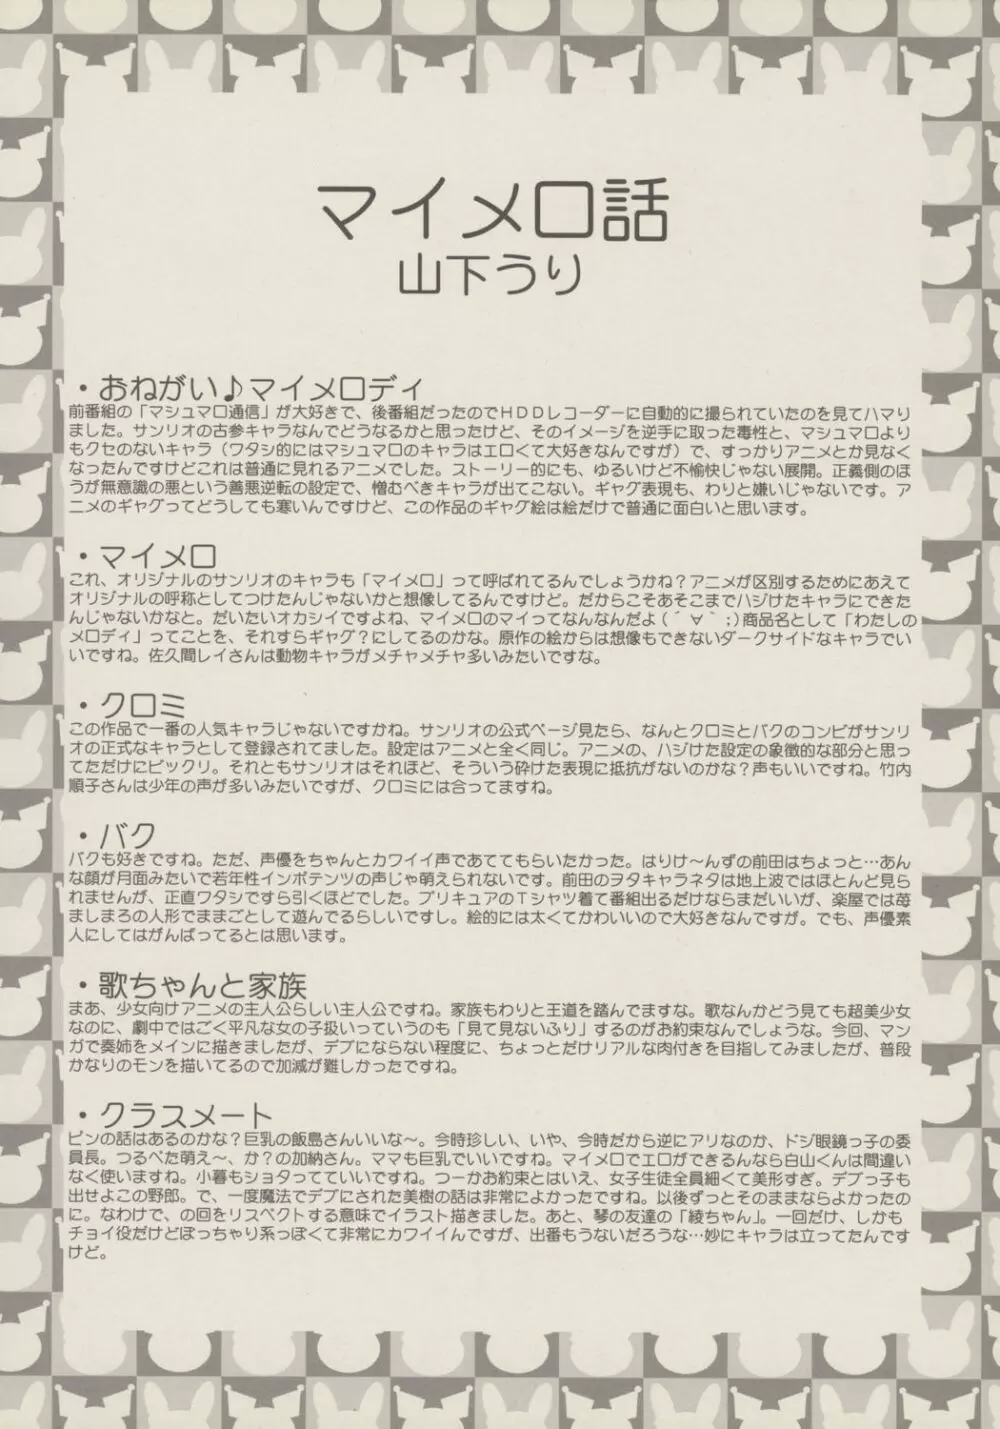 マイメロ話
山下うり
・おねがい♪マイメロディ
前番組の「マシュマロ通信」が大好きで、後番組だったのでHDDレコーダーに自動的に撮られていたのを見てハマり
ました。サンリオの古参キャラなんでどうなるかと思ったけど、そのイメージを逆手に取った毒性と、マシュマロより
もクセのないキャラ（ワタシ的にはマシュマロのキャラはエロくて大好きなんですが）で、すっかりアニメとか見なく
なったんですけどこれは普通に見れるアニメでした。ストーリー的にも、ゆるいけど不愉快じゃない展開。正義側のほ
うが無意識の悪という善悪逆転の設定で、憎むべきキャラが出てこない。ギャグ表現も、わりと嫌いじゃないです。ア
ニメのギャグってどうしても寒いんですけど、この作品のギャグ絵は絵だけで普通に面白いと思います。
・マイメロ
これ、オリジナルのサンリオのキャラも「マイメロ」って呼ばれてるんでしょうかね？アニメが区別するためにあえて
オリジナルの呼称としてつけたんじゃないかと想像してるんですけど。だからこそあそこまでハジけたキャラにできた
んじゃないかなと。だいたいオカシイですよね、マイメロのマイってなんなんだよ(´∀｀;)商品名として「わたしの
メロディ」ってことを、それすらギャグ？にしてるのかな。原作の絵からは想像もできないダークサイドなキャラでい
いですね。佐久間レイさんは動物キャラがメチャメチャ多いみたいですな。
・クロミ
この作品で一番の人気キャラじゃないですかね。サンリオの公式ページ見たら、なんとクロミとバクのコンビがサンリ
オの正式なキャラとして登録されてました。設定はアニメと全く同じ。アニメの、ハジけた設定の象徴的な部分と思っ
てただけにビックリ。それともサンリオはそれほど、そういう砕けた表現に抵抗がないのかな？声もいいですね。竹内
順子さんは少年の声が多いみたいですが、クロミには合ってますね。
・バク
バクも好きですね。ただ、声優をちゃんとカワイイ声であててもらいたかった。はりけ～んずの前田はちょっと…あん
な顔が月面みたいで若年性インポテンツの声じゃ萌えられないです。前田のヲタキャラネタは地上波ではほとんど見ら
れませんが、正直ワタシですら引くほどでした。プリキュアのTシャツ着て番組出るだけならまだいいが、楽屋では苺
ましまろの人形でままごとして遊んでるらしいですし。絵的には太くてかわいいので大好きなんですが。でも、声優素
人にしてはがんばってるとは思います。
・歌ちゃんと家族
まあ、少女向けアニメの主人公らしい主人公ですね。家族もわりと王道を踏んでますな。歌なんかどう見ても超美少女
なのに、劇中ではごく平凡な女の子扱いっていうのも「見て見ないふり」するのがお約束なんでしょうな。今回、マン
ガで奏姉をメインに描きましたが、デブにならない程度に、ちょっとだけリアルな肉付きを目指してみましたが、普段
かなりのモンを描いてるので加減が難しかったですね。
・クラスメート
ピンの話はあるのかな？巨乳の飯島さんいいな～。今時珍しい、いや、今時だから逆にアリなのか、ドジ眼鏡っ子の委
員長。つるぺた萌え～、か？の加納さん。ママも巨乳でいいですね。マイメロでエロができるんなら白山くんは間違い
なく使いますね。小暮もショタってていいですね。つーかお約束とはいえ、女子生徒全員細くて美形すぎ。デブっ子も
出せよこの野郎。で、一度魔法でデブにされた美樹の話は非常によかったですね。以後ずっとそのままならよかったの
に。なわけで、の回をリスペクトする意味でイラスト描きました。あと、琴の友達の「綾ちゃん」。一回だけ、しかも
チョイ役だけどぽっちゃり系っぽくて非常にカワイイんですが、出番もうないだろうな…妙にキャラは立ってたんです
けど。